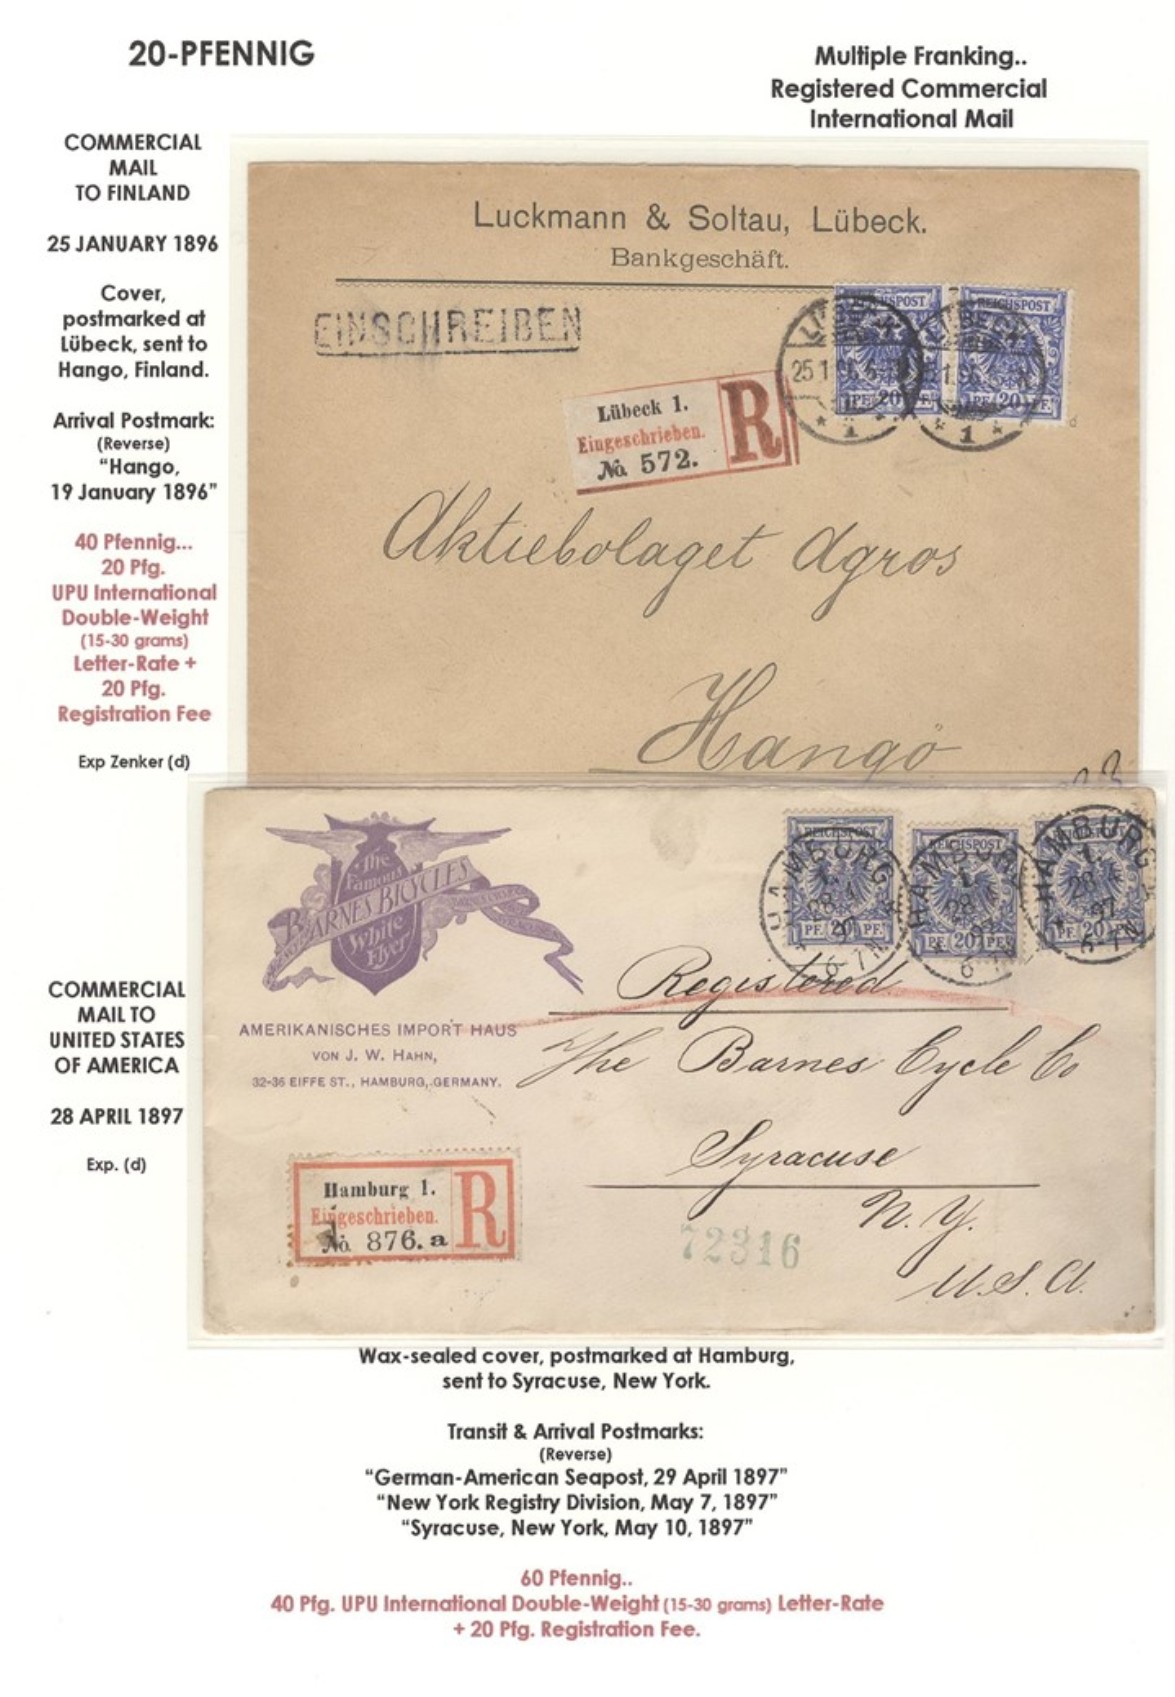 20-PFENNIG
Multiple Franking..
Registered Commercial
International Mail
COMMERCIAL
MAIL
TO FINLAND
25 JANUARY 1896
Cover,
postmarked at
Lübeck, sent to
Hango, Finland.
Arrival Postmark:
(Reverse)
“Hango,
19 January 1896”
40 Pfennig...
20 Pfg.
UPU International
Double-Weight
(15-30 grams)
Letter-Rate +
20 Pfg.
Registration Fee
Exp Zenker (d)
Luckmann & Soltau, Lübeck.
Bankgeschäft.
EINSCHREIBEN
REICHSPOST
REICHSPOST
PF. 20 PF.
PF. 20 PF.
Lübeck 1.
Eingeschrieben.
No 572.
R
Aktiebolaget Agros
Hangö
COMMERCIAL
MAIL TO
UNITED STATES
OF AMERICA
28 APRIL 1897
Exp. (d)
The
Famous
BARNES BICYCLES
White
Flyer
AMERIKANISCHES IMPORT HAUS
VON J. W. HAHN,
32-36 EIFFE ST., HAMBURG, GERMANY.
REICHSPOST
REICHSPOST
REICHSPOST
PF. 20 PF.
PF. 20 PF.
PF. 20 PF.
HAMBURG
1.
28 4
97
6-7N
HAMBURG
1.
28 4
97
HAMBURG
1.
28 4
97
6-7N
Registered
The Barnes Cycle Co
Syracuse
N. Y.
U.S.A.
Hamburg 1.
Eingeschrieben.
No 876. a
R
72316
Wax-sealed cover, postmarked at Hamburg,
sent to Syracuse, New York.
Transit & Arrival Postmarks:
(Reverse)
“German-American Seapost, 29 April 1897”
“New York Registry Division, May 7, 1897”
“Syracuse, New York, May 10, 1897”
60 Pfennig..
40 Pfg. UPU International Double-Weight (15-30 grams) Letter-Rate
+ 20 Pfg. Registration Fee.